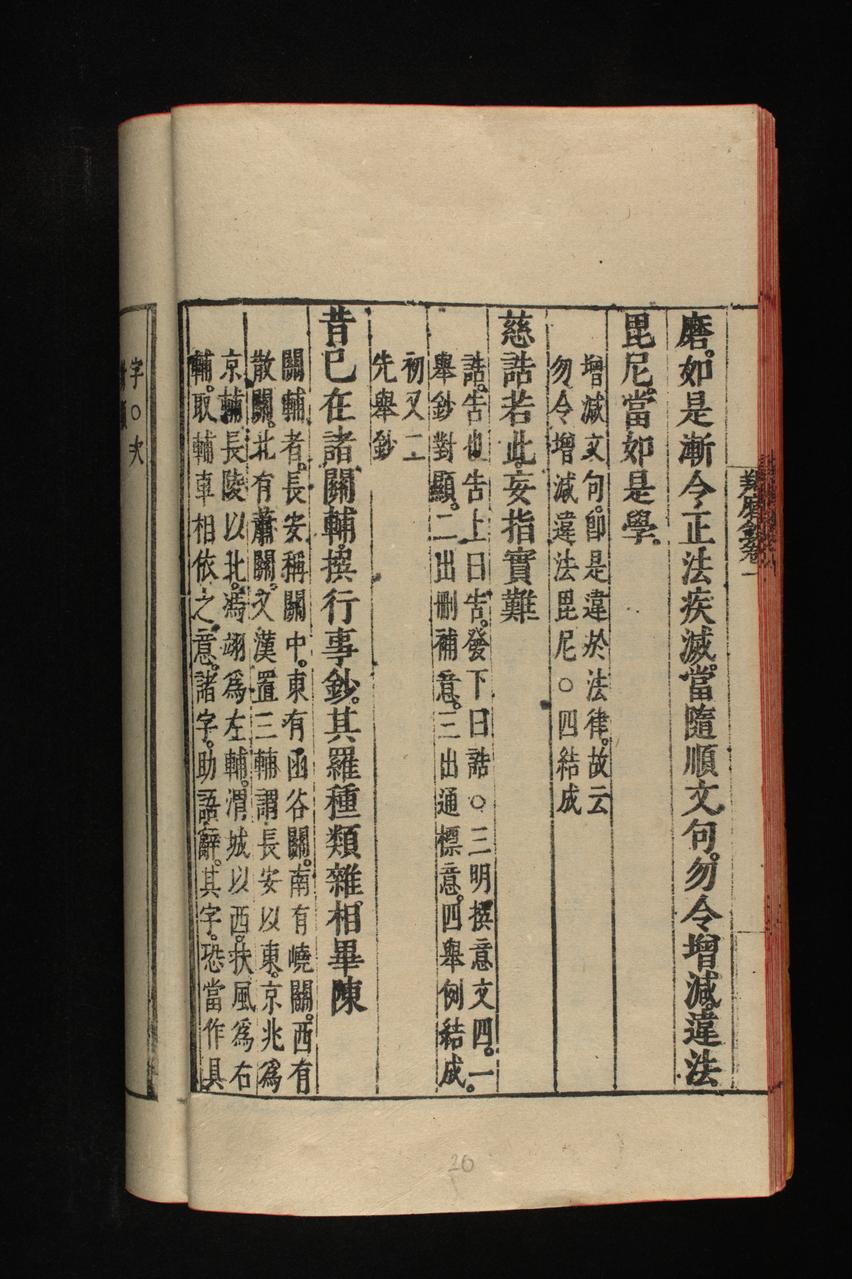 羯磨鈔卷一
磨。如是漸令正法疾滅。當隨順文句。勿令增減。違法
毘尼。當如是學。
增減文句。即是違於法律。故云
勿令增減違法毘尼○四結成
慈誥若此。妄指實難
誥。告也。告上曰告。發下曰誥○三明撰意文四。一
舉鈔對顯。二出刪補意。三出通標意。四舉例結成。
初又二
先舉鈔
昔已在諸關輔。撰行事鈔。其羅種類雜。相畢陳
關輔者。長安稱關中。東有函谷關。南有嶢關。西有
散關。北有蕭關。又漢置三輔。謂長安以東。京兆為
京輔。長陵以北。馮翊為左輔。渭城以西。扶風為右
輔。取輔車相依之意。諸字。助語辭。其字。恐當作具
字○次
20